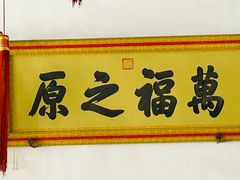 萬福之原